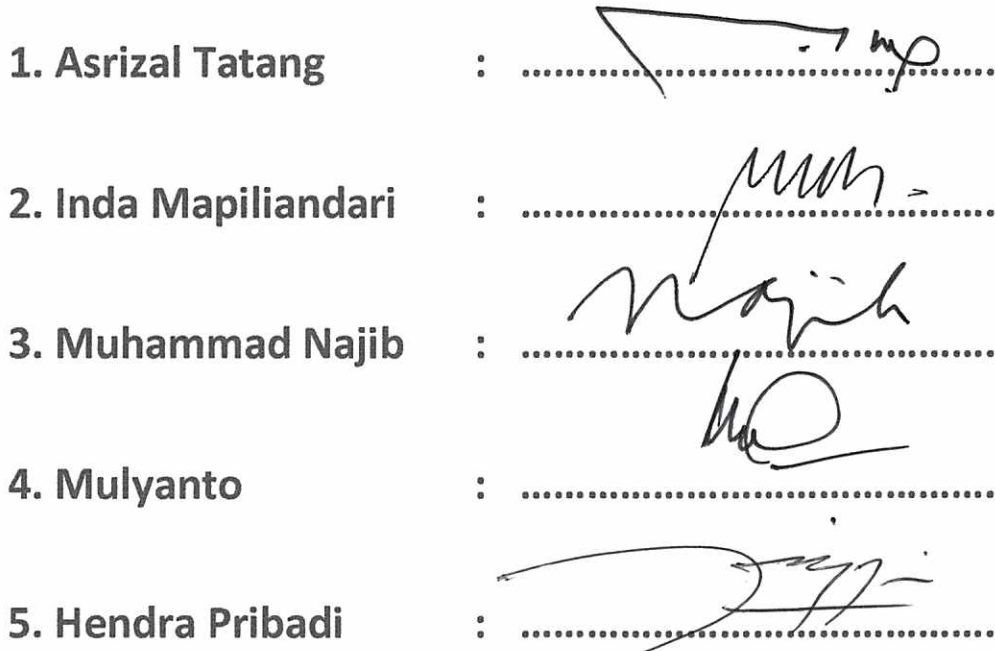 1. Asrizal Tatang : ................................................
2. Inda Mapiliandari : ................................................
3. Muhammad Najib : ................................................
Najib
4. Mulyanto : ................................................
5. Hendra Pribadi : ................................................